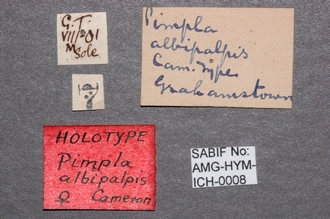 G.T.
VII/201
M Sole.
Pimpla
albipalpis
Cam. Type
Grahamstown
HOLOTYPE
Pimpla
albipalpis
♀ Cameron
SABIF No:
AMG-HYM-
ICH-0008